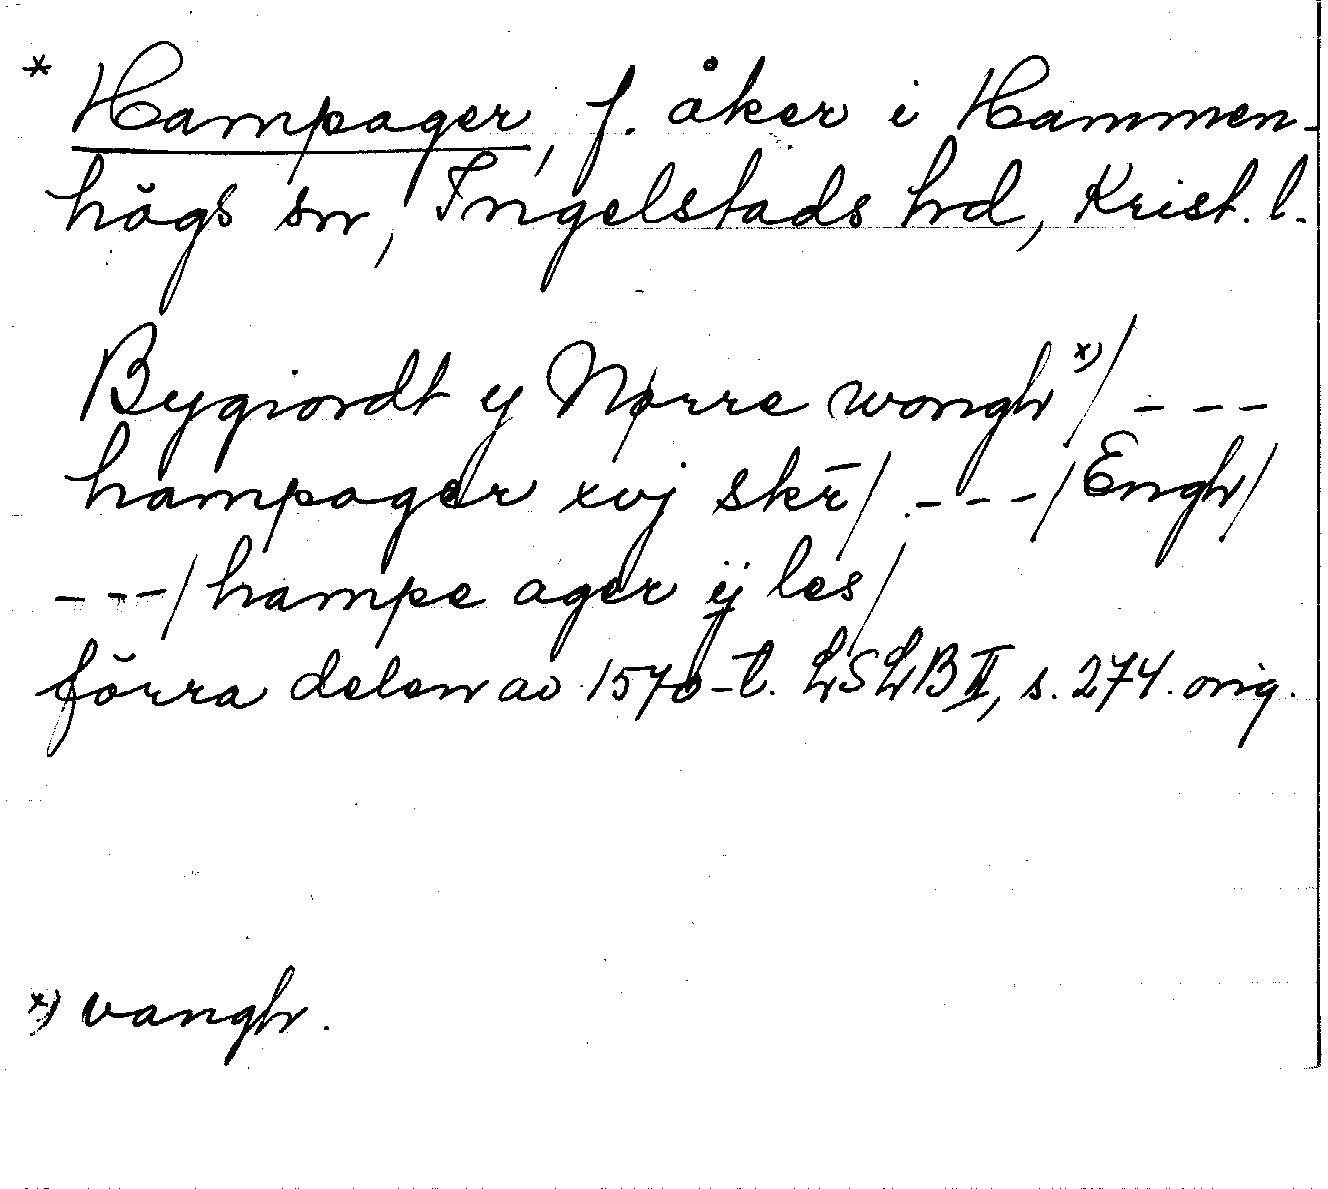 * Hampager, f. åker i Hammen-
högs sn, Ingelstads hrd, Krist. l.
Bygiordt y Nørre wongh x)/ ---
hampager xvj skr̄/ ---/Engh/
---/hampe ager ij les/
förra delen av 1570-t. LSLB II, s. 274. orig.
x) vangh.